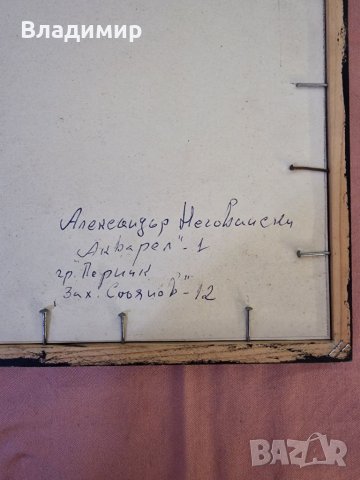 Владимир
Александър Неговански
"Акварел" - 1
гр. "Перник
"Зах. Стоянов" - 12
BAZAR